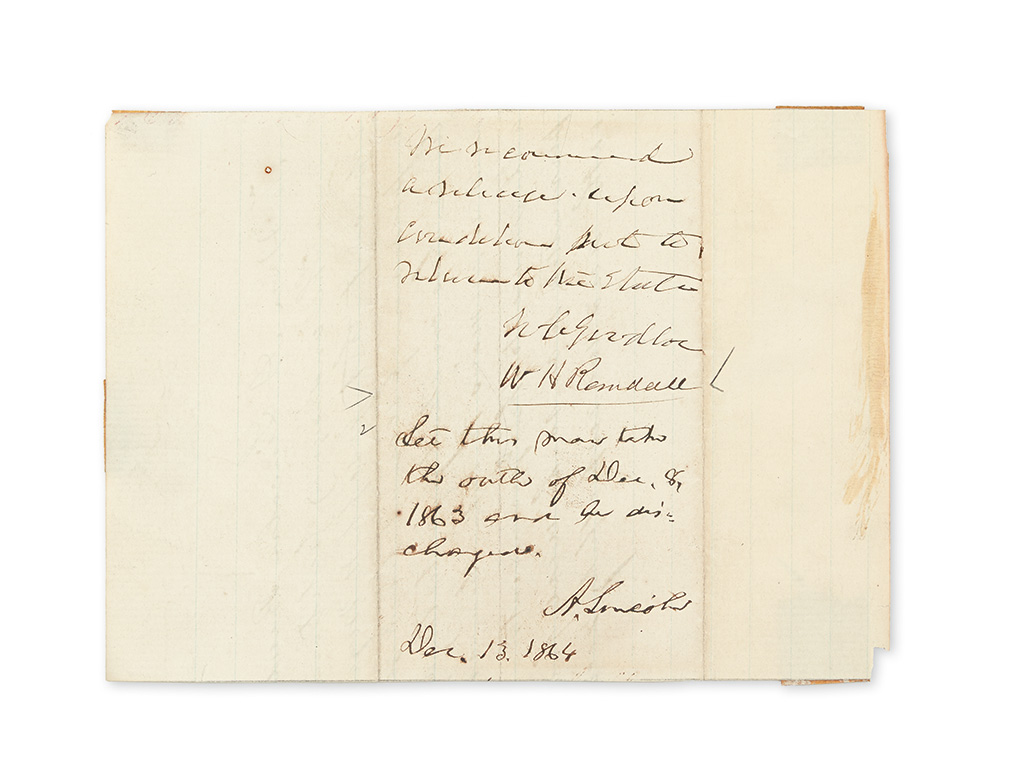 We recommend
a release upon
condition not to
return to the State
W C Goodloe
W H Randall
Let this man take
the oath of Dec. 8,
1863 and be dis-
charged.
A. Lincoln
Dec. 13. 1864